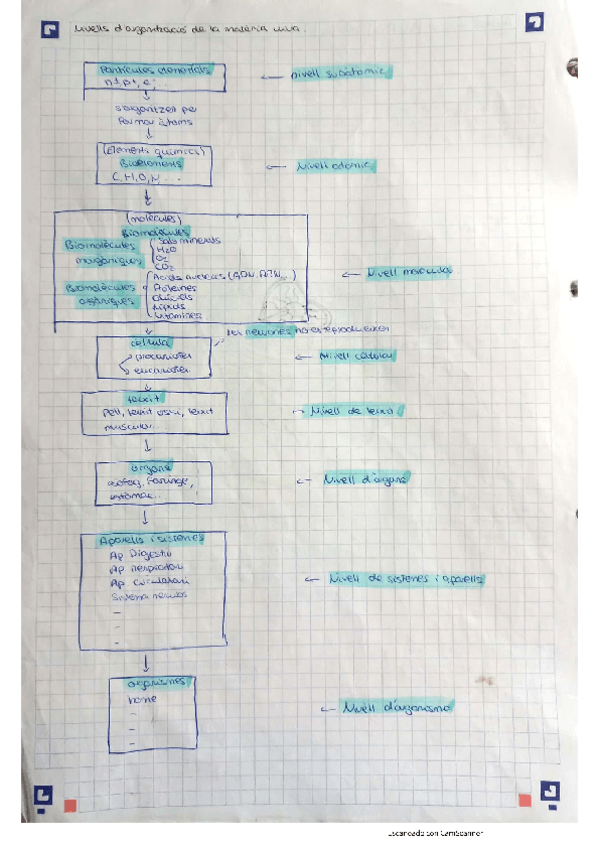 Nivells d'organització de la matèria viva.
Partícules elementals
n±, p+, e-, ...
← nivell subatòmic
s'organitzen per
formar àtoms
(Elements químics)
Bioelements
C, H, O, N, ...
← Nivell atòmic
(molècules)
Biomolècules
Biomolècules inorgàniques
Sals minerals
H2O
O2
CO2
Biomolècules orgàniques
Àcids nucleics (ADN, ARN...)
Proteïnes
Glúcids
Lípids
Vitamines
← Nivell molecular
cèl·lula
procariotes
eucariotes
les neurones no es reprodueixen
← Nivell cel·lular
teixit
Pell, teixit ossi, teixit
muscular...
← Nivell de teixit
òrgans
esòfag, faringe,
estómac...
← Nivell d'òrgans
Aparells i sistemes
Ap Digestiu
Ap respiratori
Ap circulatori
Sistema nerviós
← Nivell de sistemes i aparells
organismes
home
← Nivell d'organisme
Escaneado con CamScanner